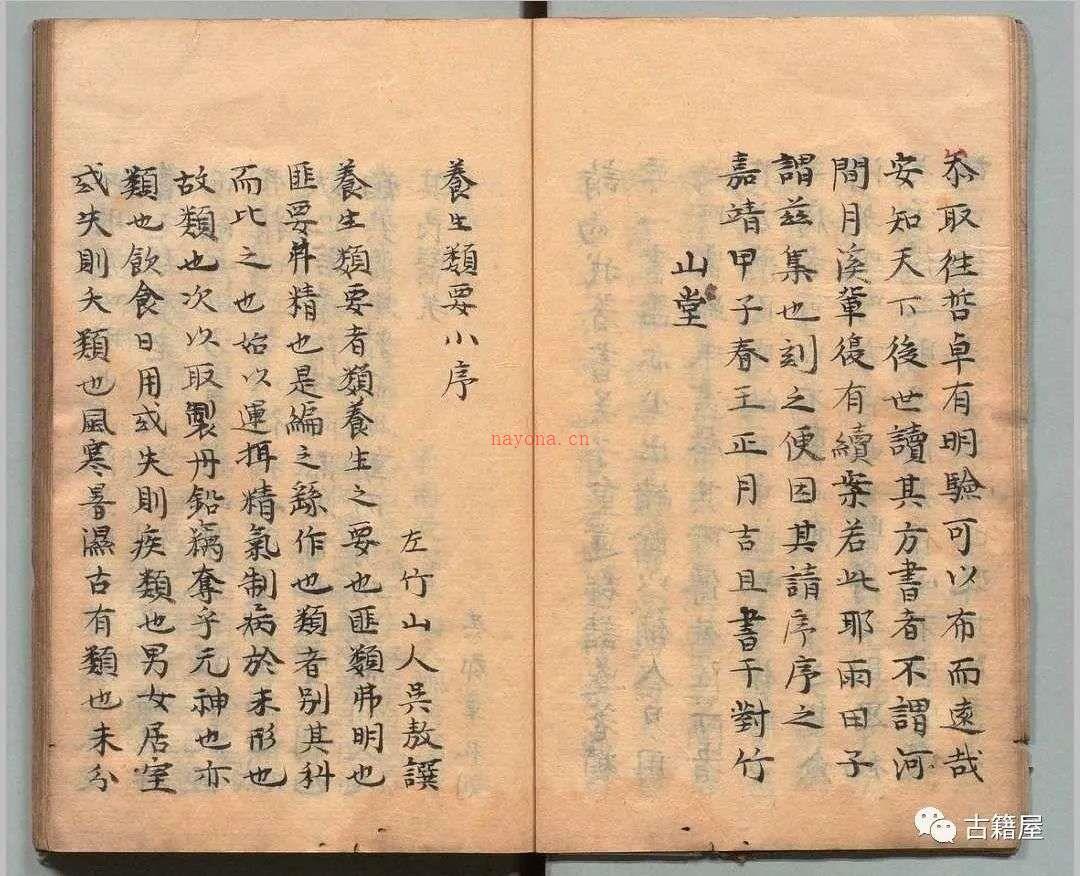 忝取往哲卓有明驗可以布而遠哉
安知天下後世讀其方書者不謂河
間月溪輩復有續案若此耶雨田子
謂兹集也刻之便因其請序序之
嘉靖甲子春王正月吉旦書于對竹
山堂
養生類要小序
左竹山人吳敖譔
養生類要者類養生之要也匪類弗明也
匪要弗精也是編之繇作也類者别其科
而比之也始以運揖精氣制病於未形也
故類也次以取製丹鉛竊奪乎元神也亦
類也飲食日用或失則疾類也男女居室
或失則夭類也風寒暑濕古有類也未分
nayona.cn
古籍屋